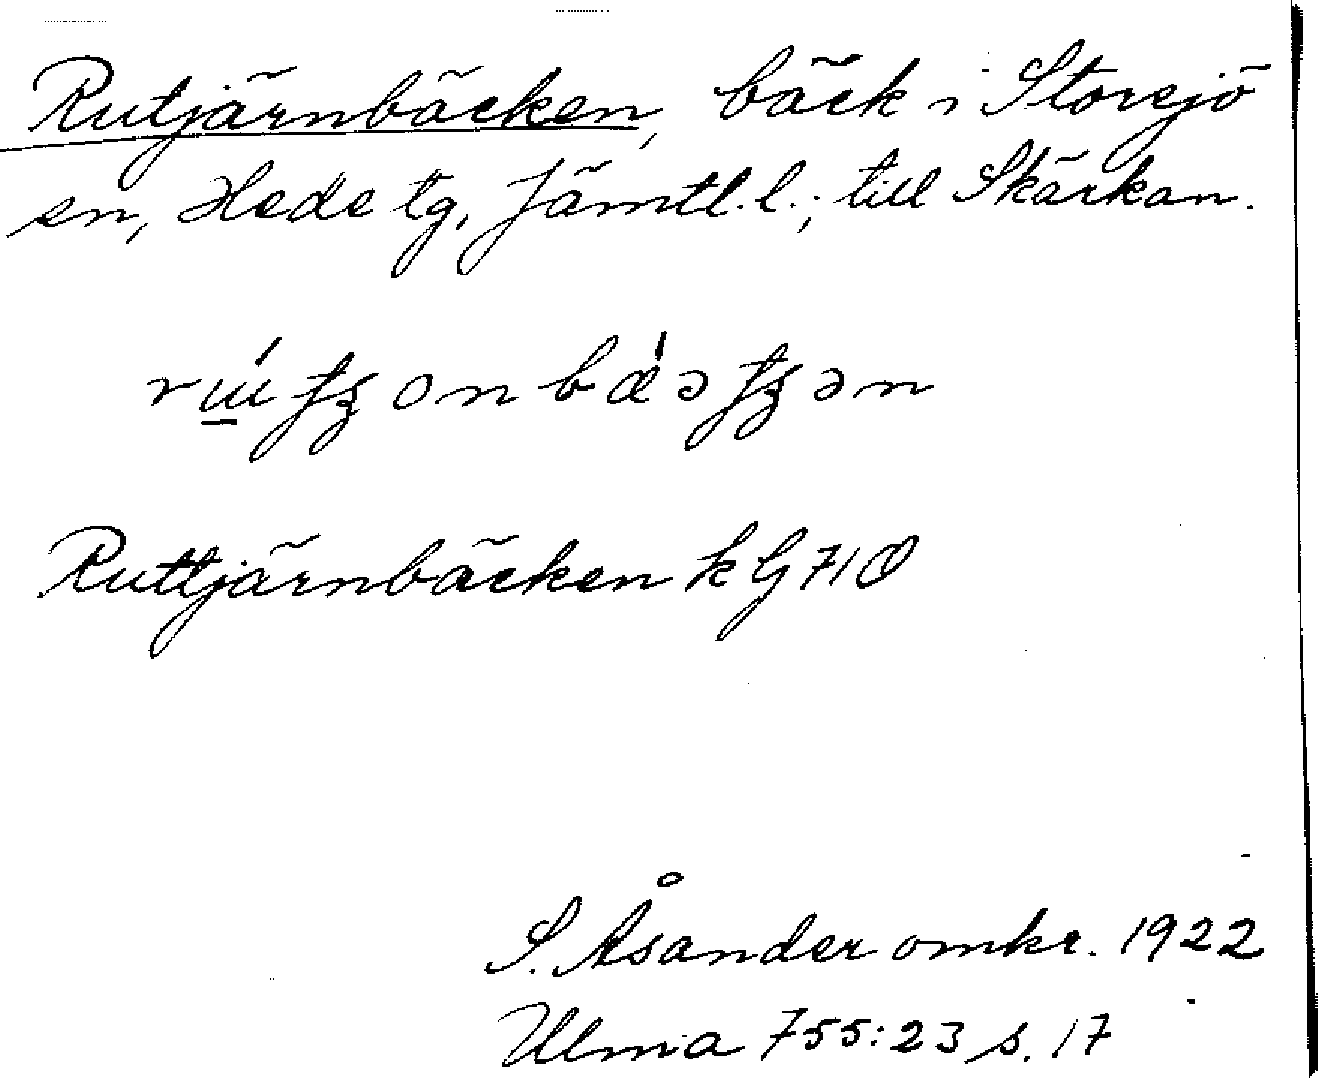 Rutjärnbäcken, bäck i Storsjö
sn, Hede tg, Jämtl. l.; till Skärkan.
Ruttjärnbäcken k G 71 Ö
S. Åsander omkr. 1922
Ulma 755:23 s. 17